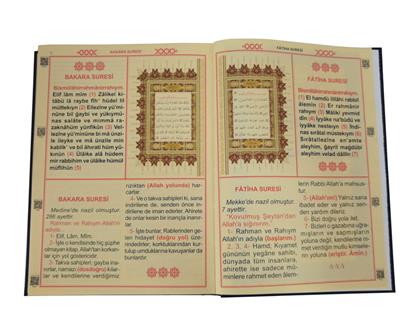 BAKARA SURESİ
BAKARA SURESİ
Bismillâhirrahmânirrahîym.
Elif lâm mîm (1) Zâlikel ki-
tâbü lâ raybe fih' hüdel lil
müttekıyn (2) Ellezîne yü'mi-
nûne bil ğaybi ve yükıymû-
nes salâte ve mimmâ ra-
zaknâhüm yünfikûn (3) Vel-
lezîne yü'minûne bi mâ ünzi-
le ileyke ve mâ ünzile min
kablik' ve bil âhırati hüm yû-
kınûn (4) Ülâike alâ hüdem
mir rabbihim ve ülâike hümül
müflihûn (5)
BAKARA SURESİ
Medine'de nazil olmuştur.
286 ayettir.
Rahman ve Rahıym Allah'ın
adıyla...
1- Elif, Lâm, Mîm.
2- İşte o kendisinde hiç şüphe
olmayan kitap. Allah'tan korkan-
lar için yol göstericidir.
3- Takva sahipleri; gayba ina-
nırlar, namazı (dosdoğru) kılar-
lar ve kendilerine verdiğimiz
rızıktan (Allah yolunda) har-
carlar.
4- Ve o takva sahipleri ki, sana
indirilene de, senden önce in-
dirilene de iman ederler. Ahirete
de onlar kesin bir inançla inanır-
lar.
5- İşte bunlar, Rablerinden ge-
len hidayet (doğru yol) üze-
rindedirler; korktuklarından kur-
tulup umduklarına kavuşacaklar
da bunlardır.
FÂTİHA SURESİ
FÂTİHA SURESİ
Mekke'de nazil olmuştur.
7 ayettir.
"Kovulmuş Şeytan'dan
Allah'a sığınırım."
1- Rahman ve Rahıym
Allah'ın adıyla (başlarım.)
2, 3, 4- Hamd, Kıyamet
gününün yegâne sahibi,
dünyada tüm insanlara,
ahirette ise sadece
müminlere rahmet eden âlem-
FÂTİHA SURESİ
Bismillâhirrahmânirrahîym.
(1) El hamdü lillâhi rabbil
âlemîn (2) Er rahmânir
rahıym (3) Mâliki yevmid
dîn (4) İyyâke na'büdü ve
iyyâke nesteıyn (5) İhdi-
nas sırâtal müstekıym (6)
Sırâtallezîne en'amte
aleyhim, ğayril mağdûbi
aleyhim veled dâllîn (7)
lerin Rabbi Allah'a mahsus-
tur.
5- (Allah'ım!) Yalnız sana
ibadet eder ve yalnız sen-
den yardım dileriz.
6- Bizi doğru yola ilet.
7- Bizleri o gazabına uğramış-
ların ve sapmışların
yoluna değil, kendilerine ni-
met verdiğin mutlu kimsele-
rin yoluna (eriştir. Âmin.)